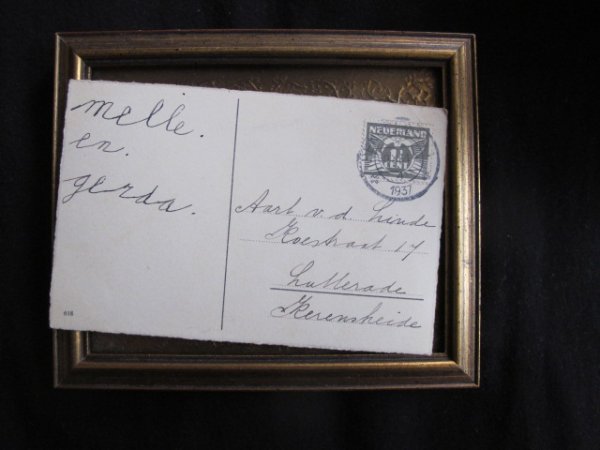 melle.
en.
gerda.
NEDERLAND
1½
CENT
1937
Aart v. d. Linde
Koestraat 17
Lutterade
Kerensheide
618